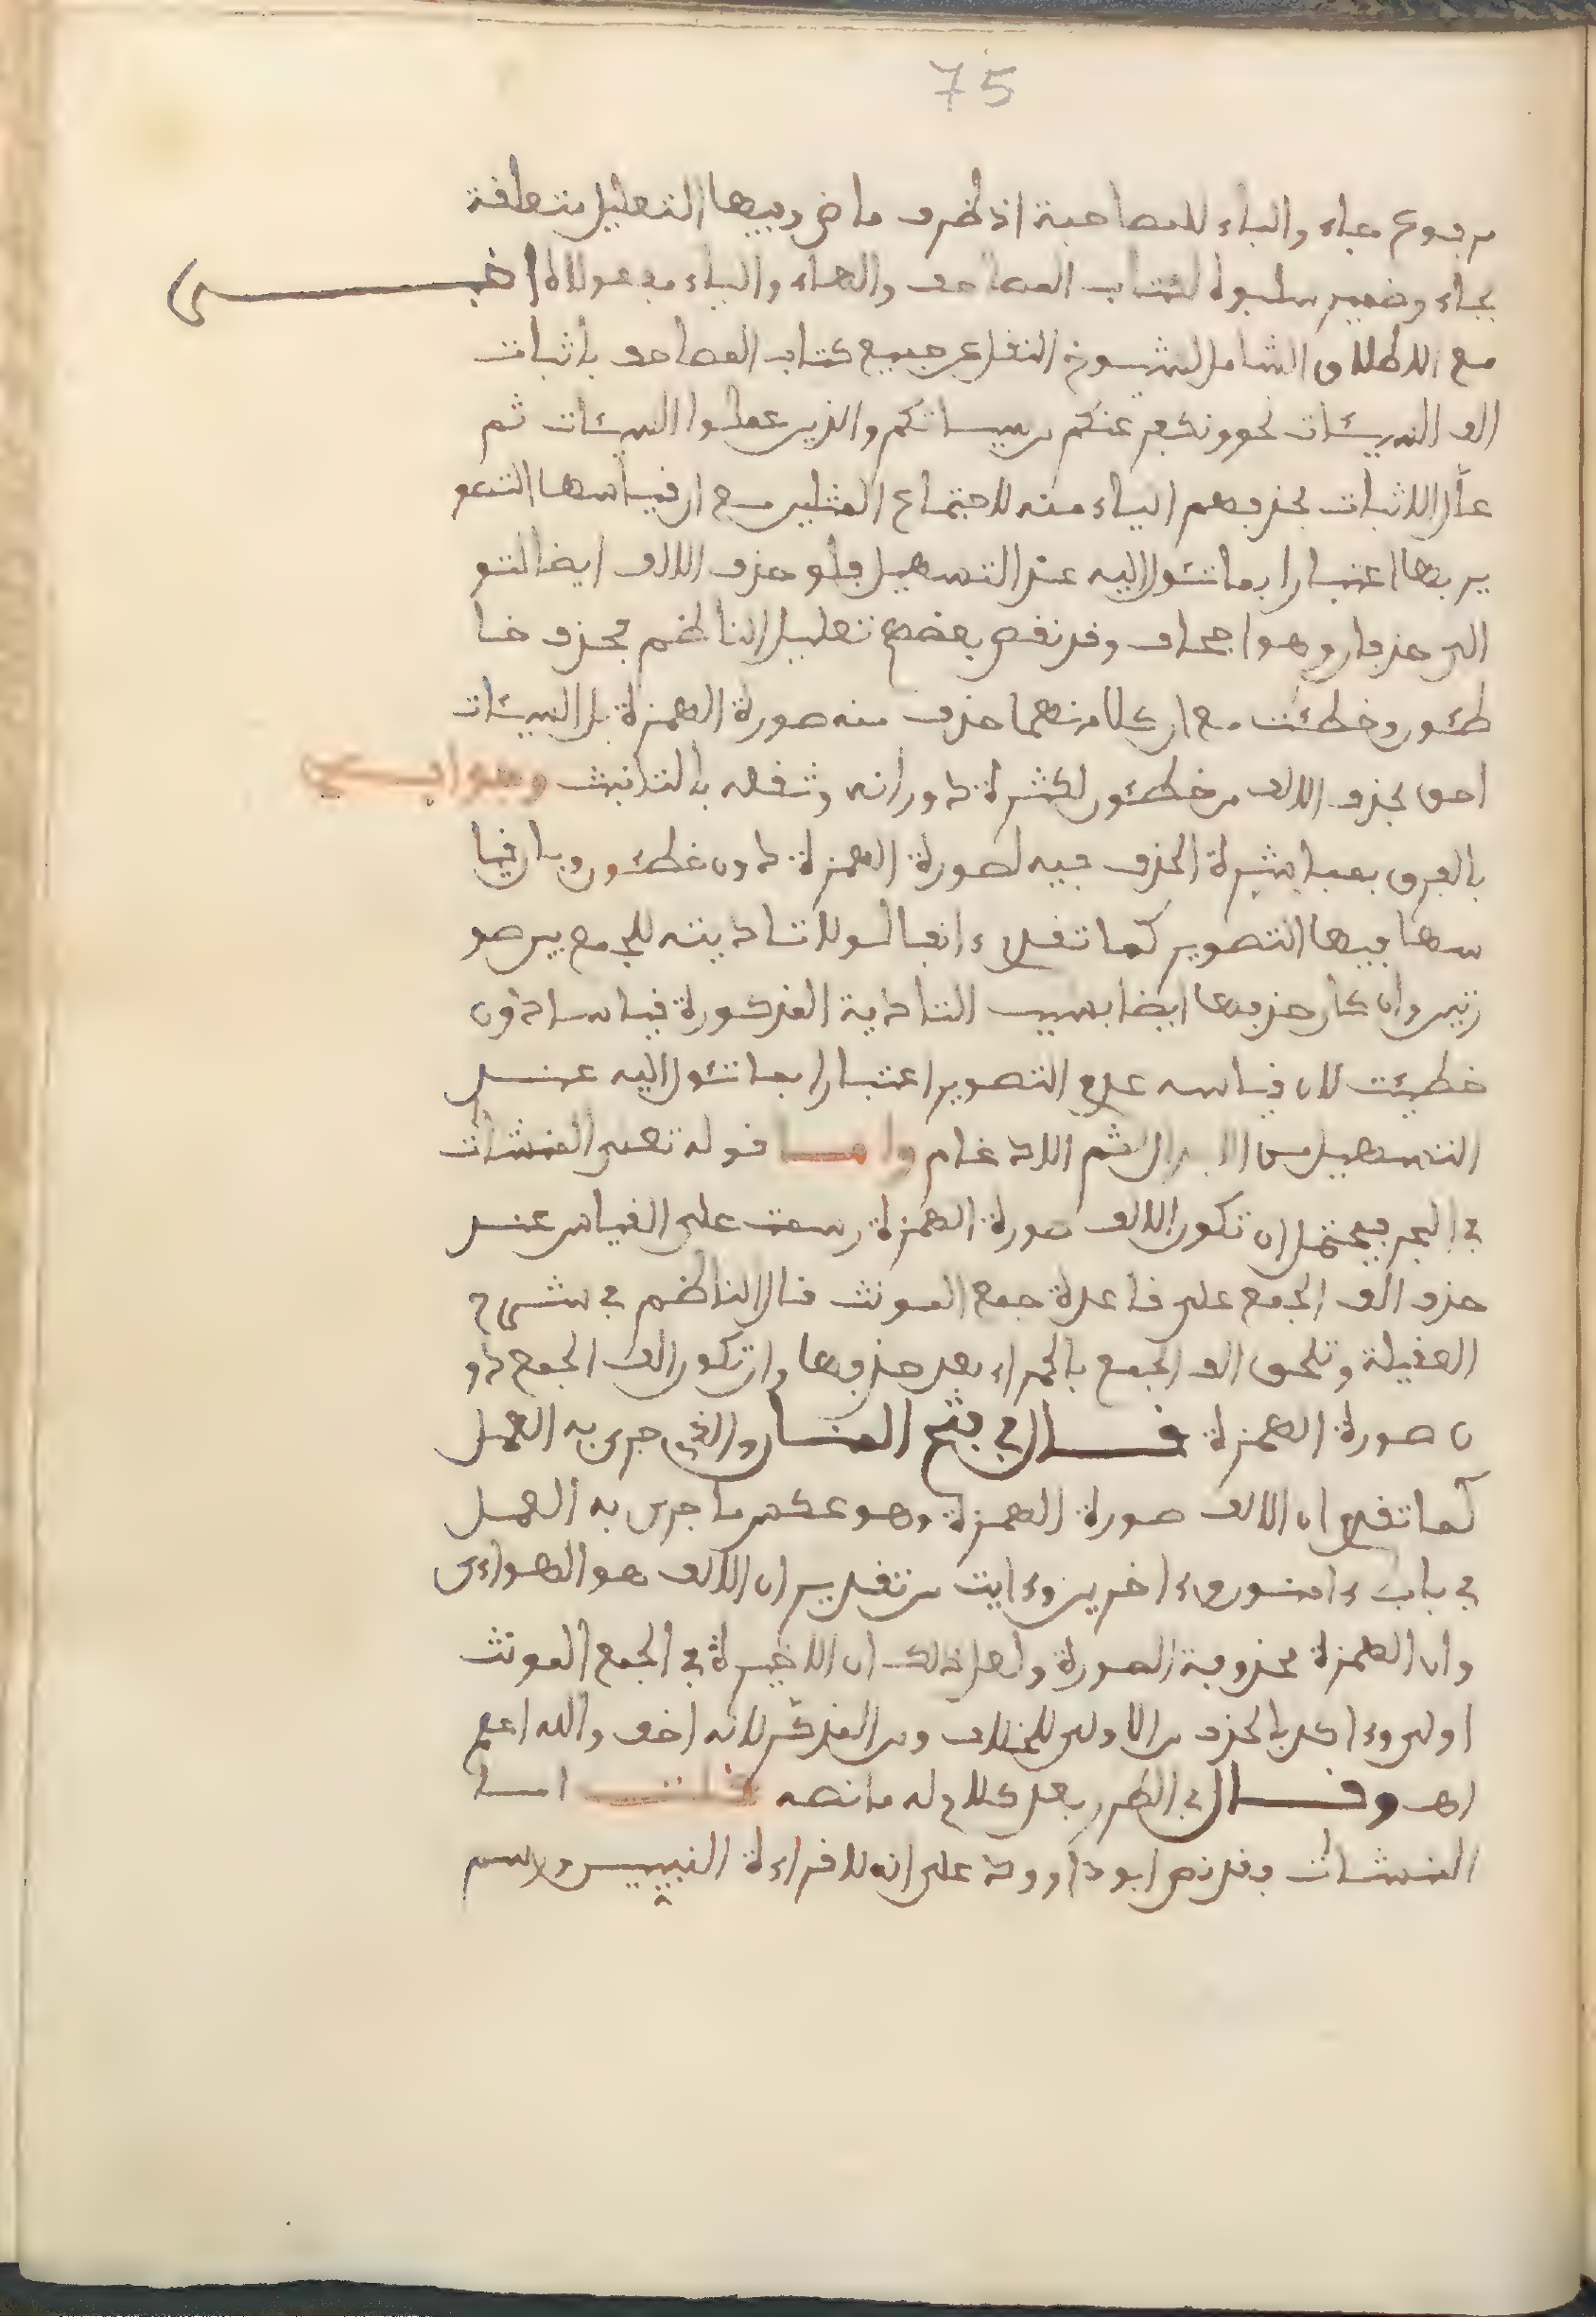 75
مرفوع بجاء والباء للمصاحبة اذ ظرف ماض وفيها التعليل متعلقة
بجاء وضمير سلبوه لكتاب المصاحف والهاء والياء مفعولاه اخبر
مع الاطلاق الشامل لشيوخ النقل عن جميع كتاب المصاحف باثبات
الف السيئات نحو ونكفر عنكم من سيئاتكم والذين عملوا السيئات ثم
علل الاثبات بحذفهم الياء منه لاجتماع المثلين مع ان قياسها التصو
ير بها اعتبارا بما تئول اليه عند التسهيل فلو حذف الالف ايضا لتو
الى حذفان وهو اجحاف وقد نقض بعضهم تعليل الناظم بحذف خا
طئون وخطئت مع ان كلا منهما حذف منه صورة الهمزة بل السيئات
احق بحذف الالف من خطئون لكثرة دورانه وثقله بالتانيث وجوابه
بالفرق بمباشرة الحذف فيه لصورة الهمزة دون خطئون وبان قيا
سها فيها التصوير كما تقدم ءانفا لولا تاديته للجمع بين صو
رتين وان كان حذفها ايضا بسبب التادية المذكورة قياسا دون
خطيئت لان قياسه عدم التصوير اعتبارا بما تئول اليه عند
التسهيل من الابدال ثم الادغام واما قوله تعلى المنشئات
في البحر فيحتمل ان تكون الالف صورة الهمزة رسمت على القياس عند
حذف الف الجمع على قاعدة جمع المونث قال الناظم في شرح
العقيلة وتلحق الف الجمع بالحمراء بعد حذفها وان تكون الف الجمع دو
ن صورة الهمزة قال في فتح المنان والذي جرى به العمل
كما تقدم ان الالف صورة الهمزة وهو عكس ما جرى به العمل
في باب ءامنوا وءاخرين وءايت من تقدير ان الالف هو الهواءى
وان الهمزة محذوفة الصورة ولعل ذلك ان الاخيرة في الجمع المونث
اولى وءاكد بالحذف من الاولى للخلاف ومن المذكر لانه اخف والله اعلم
اهـ وقال في الطرر بعد كلام له ما نصه قلت اما
المنشئات فقد نص ابو داوود على انه لا قراءة النبيين ورسم